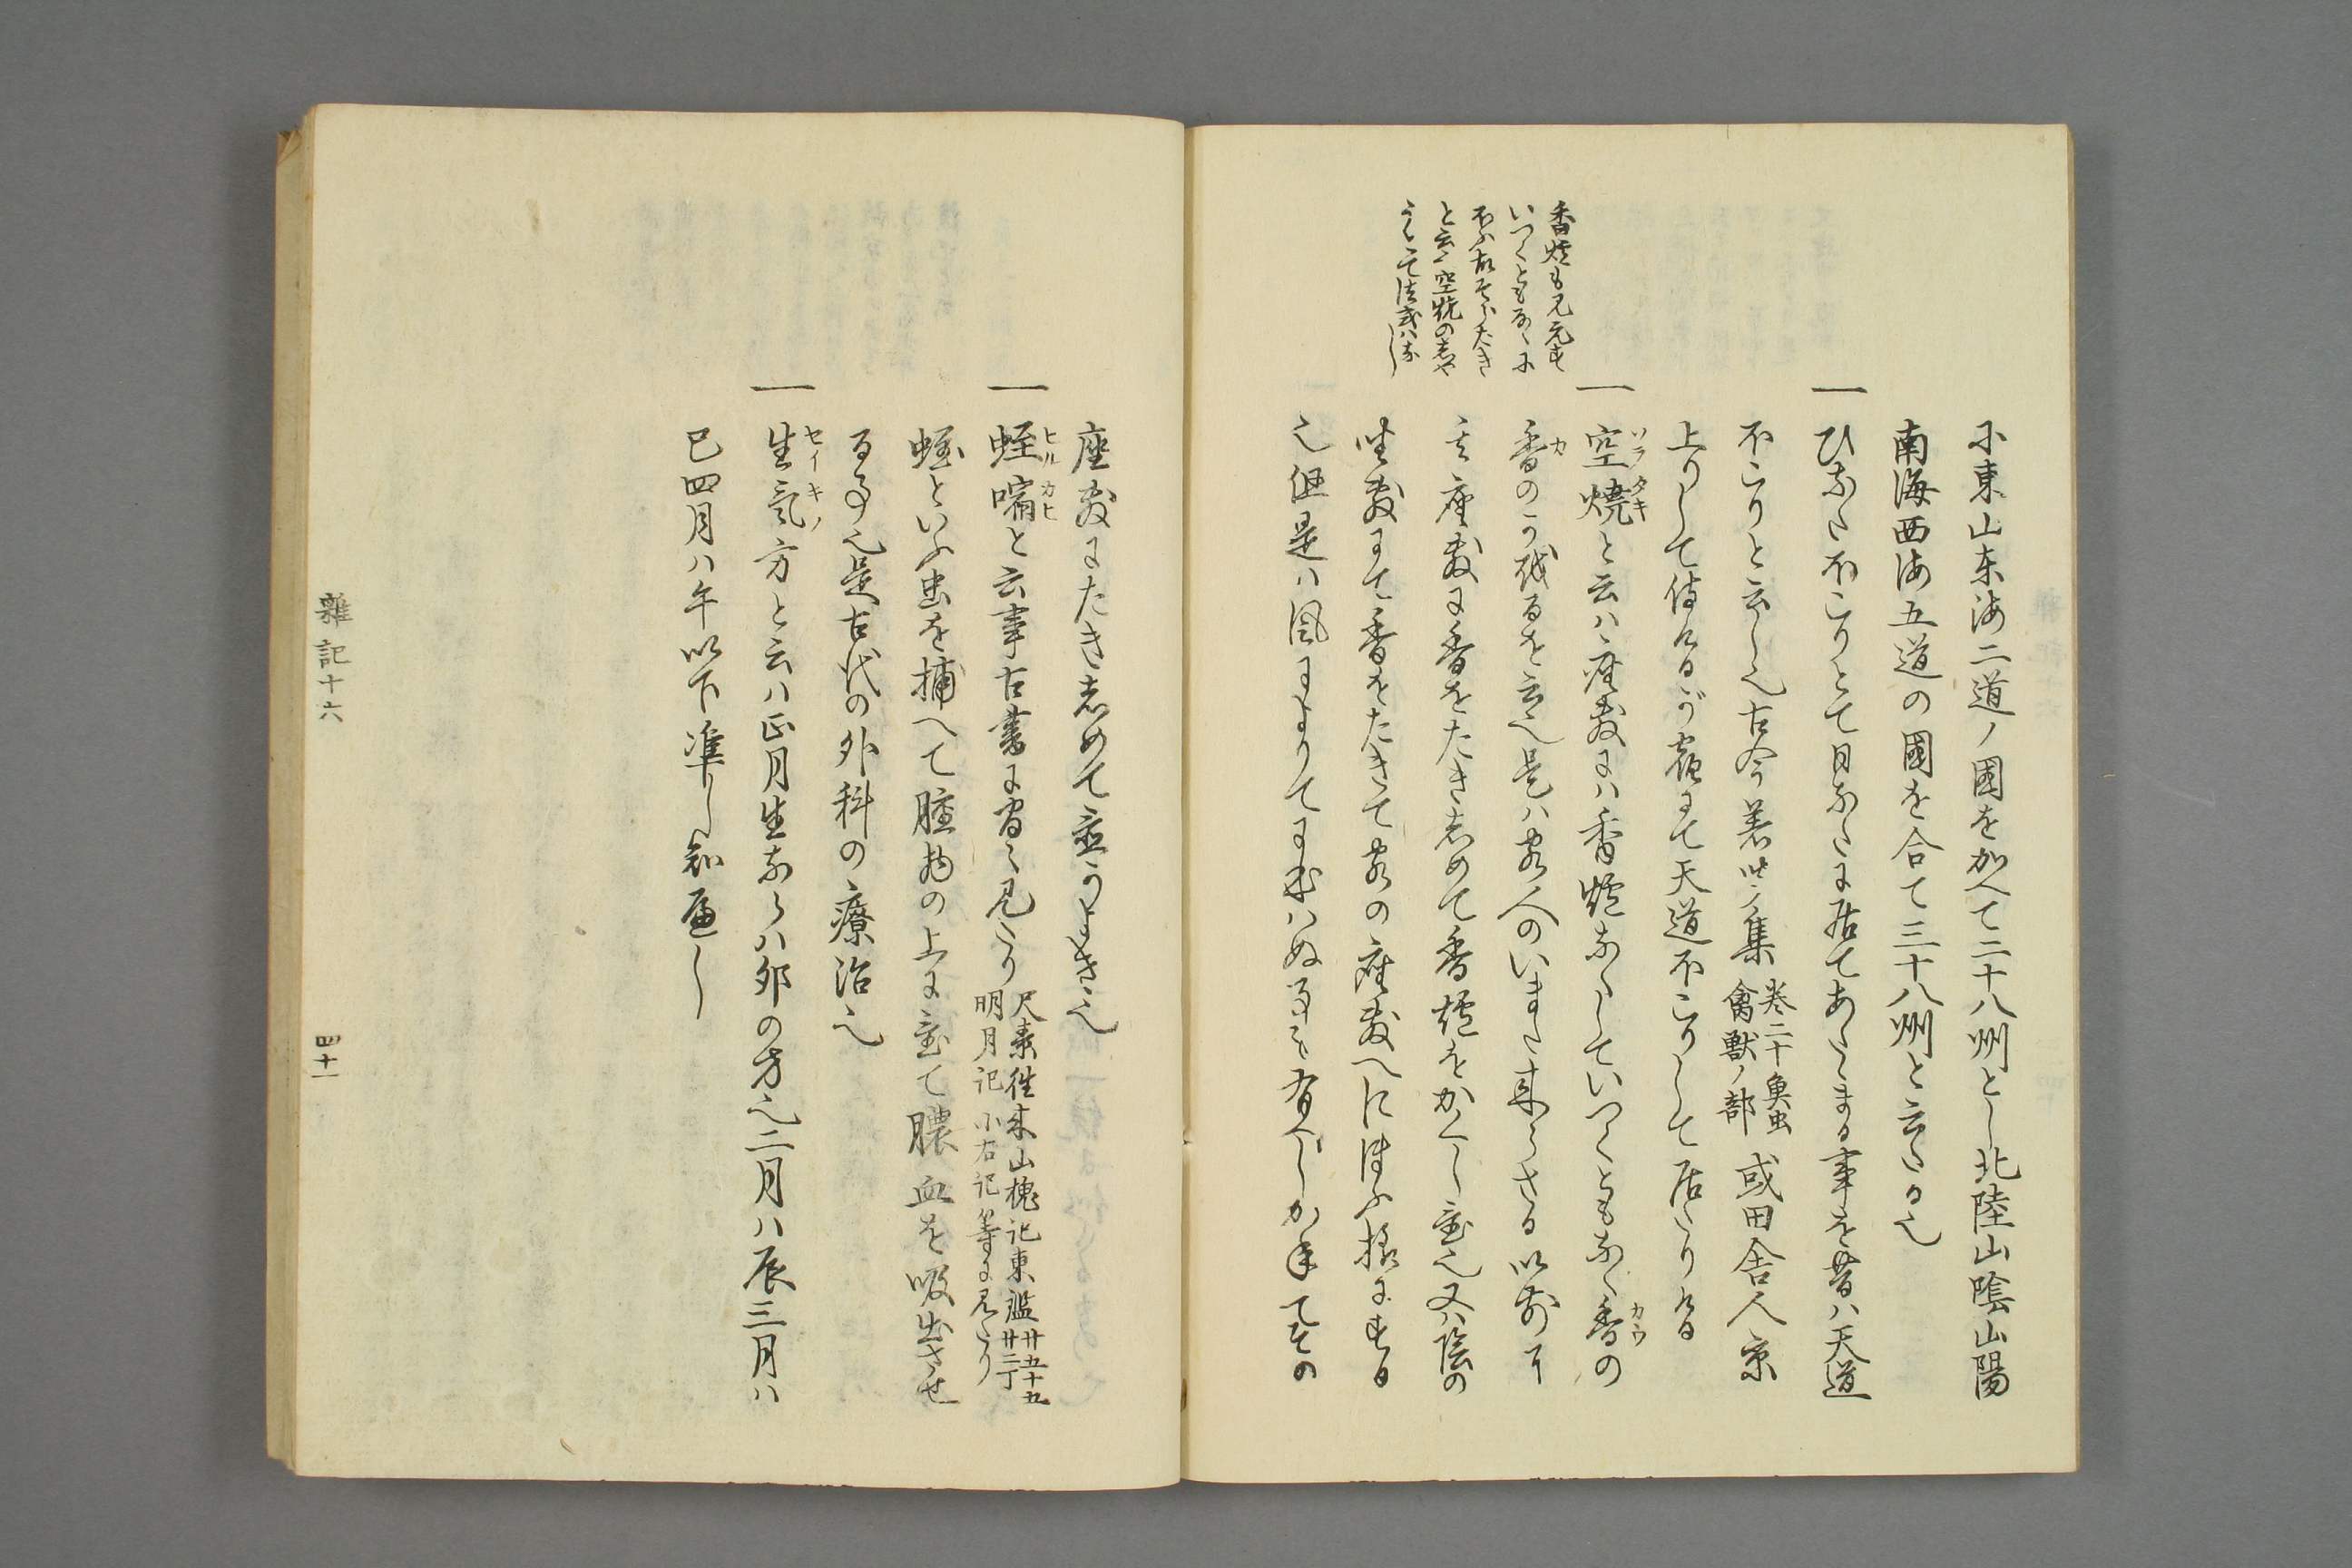 香炉も見元す
いつくともなくに
不ふ故そらたき
と云へ空焼のしや
うとて法式はなし
に東山东海二道ノ國を加へて二十八州とし北陸山陰山陽
南海西海五道の國を合て三十八州と云たる也
一 ひなたほこりとて日なたに居てあたゝまる事を昔ハ天道
ほこりと云し也古今著聞集 巻二十魚虫禽獣ノ部 或田舎人京
上りして侍けるが宿にて天道ほこりして居たりける
一 空焼と云ハ座敷にハ香爐なくしていつくともなく香の
香のするを云也是ハ客人のいまた来らさる以前に
其座敷に香をたきしめて香爐をかくし置也又ハ陰の
坐敷にて香をたきて客の座敷へにほふ様にする
也但是ハ風によりてにほハぬ事も有へしかねてその
座敷にたきしめて置かよき也
一 蛭喰と云事古書に間々見えたり 尺素往来山槐記東鑑廿五十五廿二丁明月記小右記等に見えたり
蛭といふ虫を捕へて腫物の上に置て膿血を吸出させ
る事也是古代の外科の療治也
一 生氣方と云ハ正月生ならハ卯の方也二月ハ辰三月ハ
巳四月ハ午以下准して知へし
雜記十六
四十一